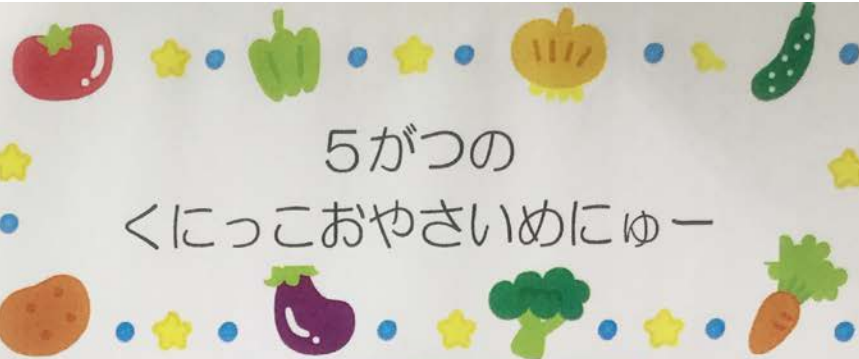 ５がつの
くにっこおやさいめにゅー